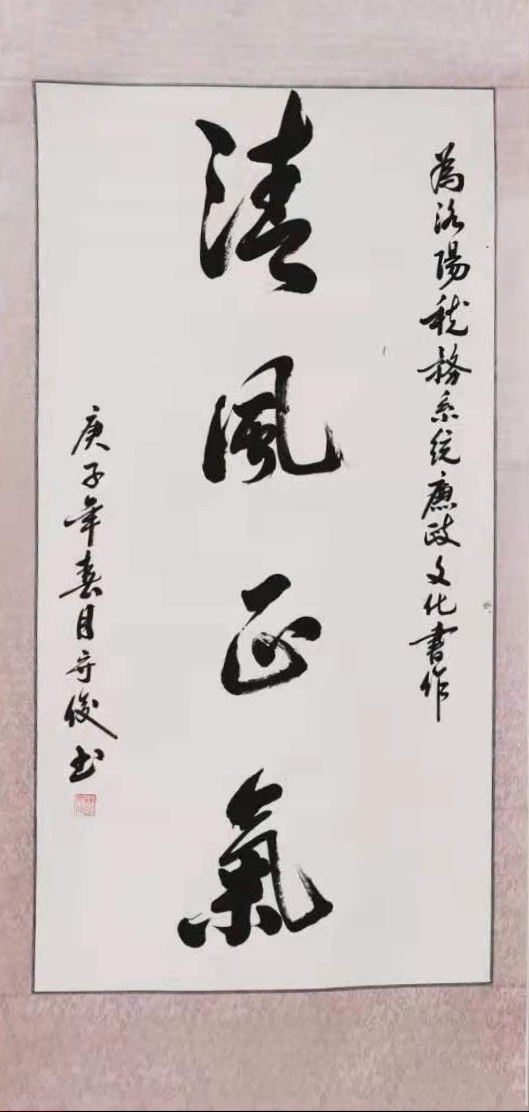 為洛陽税務系统廉政文化書作
清風正氣
庚子年春月守俊书